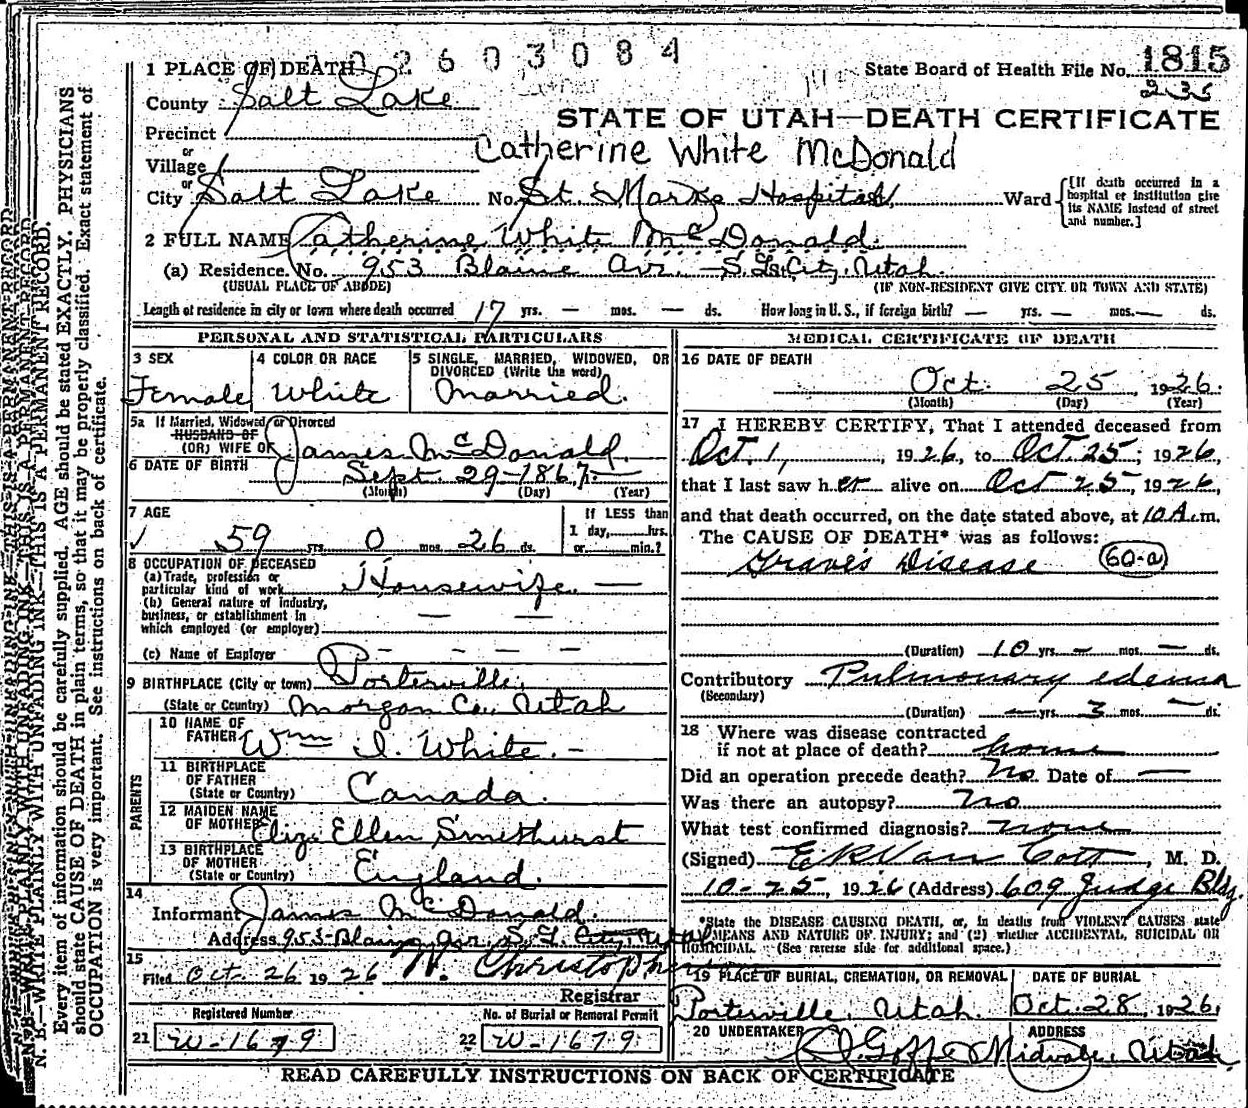 2603084
1 PLACE OF DEATH
State Board of Health File No. 1815
235
County Salt Lake
STATE OF UTAH—DEATH CERTIFICATE
Precinct
or
Village
Catherine White McDonald
or
City Salt Lake No. St. Marks Hospital, Ward
[If death occurred in a hospital or institution give its NAME instead of street and number.]
2 FULL NAME Catherine White McDonald.
(a) Residence. No. 953 Blaine Ave. — S. L. City. Utah.
(USUAL PLACE OF ABODE) (IF NON-RESIDENT GIVE CITY OR TOWN AND STATE)
Length of residence in city or town where death occurred 17 yrs. — mos. — ds. How long in U. S., if foreign birth? — yrs. — mos. — ds.
PERSONAL AND STATISTICAL PARTICULARS
3 SEX
Female
4 COLOR OR RACE
White
5 SINGLE, MARRIED, WIDOWED, OR DIVORCED (Write the word)
Married.
5a If Married, Widowed or Divorced
HUSBAND OF
(OR) WIFE OF James McDonald.
6 DATE OF BIRTH Sept. 29-1867.—
(Month) (Day) (Year)
7 AGE
59 yrs. 0 mos. 26 ds.
If LESS than
1 day, hrs.
or min.?
8 OCCUPATION OF DECEASED
(a) Trade, profession or
particular kind of work Housewife. —
(b) General nature of industry,
business, or establishment in
which employed (or employer) — —
(c) Name of Employer — — — — —
9 BIRTHPLACE (City or town) Porterville,
(State or Country) Morgan Co., Utah
PARENTS
10 NAME OF
FATHER Wm I. White. —
11 BIRTHPLACE
OF FATHER
(State or Country) Canada.
12 MAIDEN NAME
OF MOTHER Eliz. Ellen Smethurst
13 BIRTHPLACE
OF MOTHER
(State or Country) England.
14
Informant James McDonald.
Address 953-Blaine Ave. S. L. City, Utah
15
Filed Oct. 26 1926 W. Christopherson
Registrar
Registered Number
21 W-1679
No. of Burial or Removal Permit
22 W-1679.
MEDICAL CERTIFICATE OF DEATH
16 DATE OF DEATH
Oct. 25, 1926.
(Month) (Day) (Year)
17 I HEREBY CERTIFY, That I attended deceased from
Oct. 1, 1926, to Oct. 25; 1926,
that I last saw her alive on Oct 25, 1926,
and that death occurred, on the date stated above, at 10 A.m.
The CAUSE OF DEATH* was as follows:
Graves Disease (60-a)
(Duration) 10 yrs. — mos. — ds.
Contributory Pulmonary edema
(Secondary)
(Duration) — yrs. 3 mos. — ds.
18 Where was disease contracted
if not at place of death? home
Did an operation precede death? No. Date of —
Was there an autopsy? No
What test confirmed diagnosis? none
(Signed) E K Van Cott, M. D.
10-25, 1926 (Address) 609 Judge Bldg.
*State the DISEASE CAUSING DEATH, or, in deaths from VIOLENT CAUSES state
MEANS AND NATURE OF INJURY; and (2) whether ACCIDENTAL, SUICIDAL OR
HOMICIDAL. (See reverse side for additional space.)
19 PLACE OF BURIAL, CREMATION, OR REMOVAL
Porterville, Utah.
DATE OF BURIAL
Oct. 28, 1926.
20 UNDERTAKER
Goff
ADDRESS
Midvale, Utah.
READ CAREFULLY INSTRUCTIONS ON BACK OF CERTIFICATE
N. B.—WRITE PLAINLY WITH UNFADING INK—THIS IS A PERMANENT RECORD.
Every item of information should be carefully supplied. AGE should be stated EXACTLY. PHYSICIANS
should state CAUSE OF DEATH in plain terms, so that it may be properly classified. Exact statement of
OCCUPATION is very important. See instructions on back of certificate.